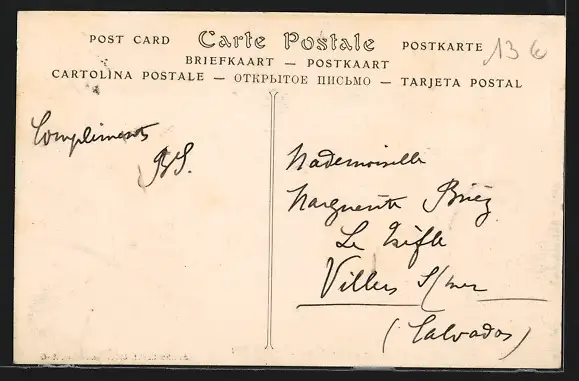 POST CARD Carte Postale POSTKARTE 13 €
BRIEFKAART — POSTKAART
CARTOLINA POSTALE — ОТКРЫТОЕ ПИСЬМО — TARJETA POSTAL
Compliments
Mademoiselle
Marguerite
Le
Villers s/mer
(Calvados)